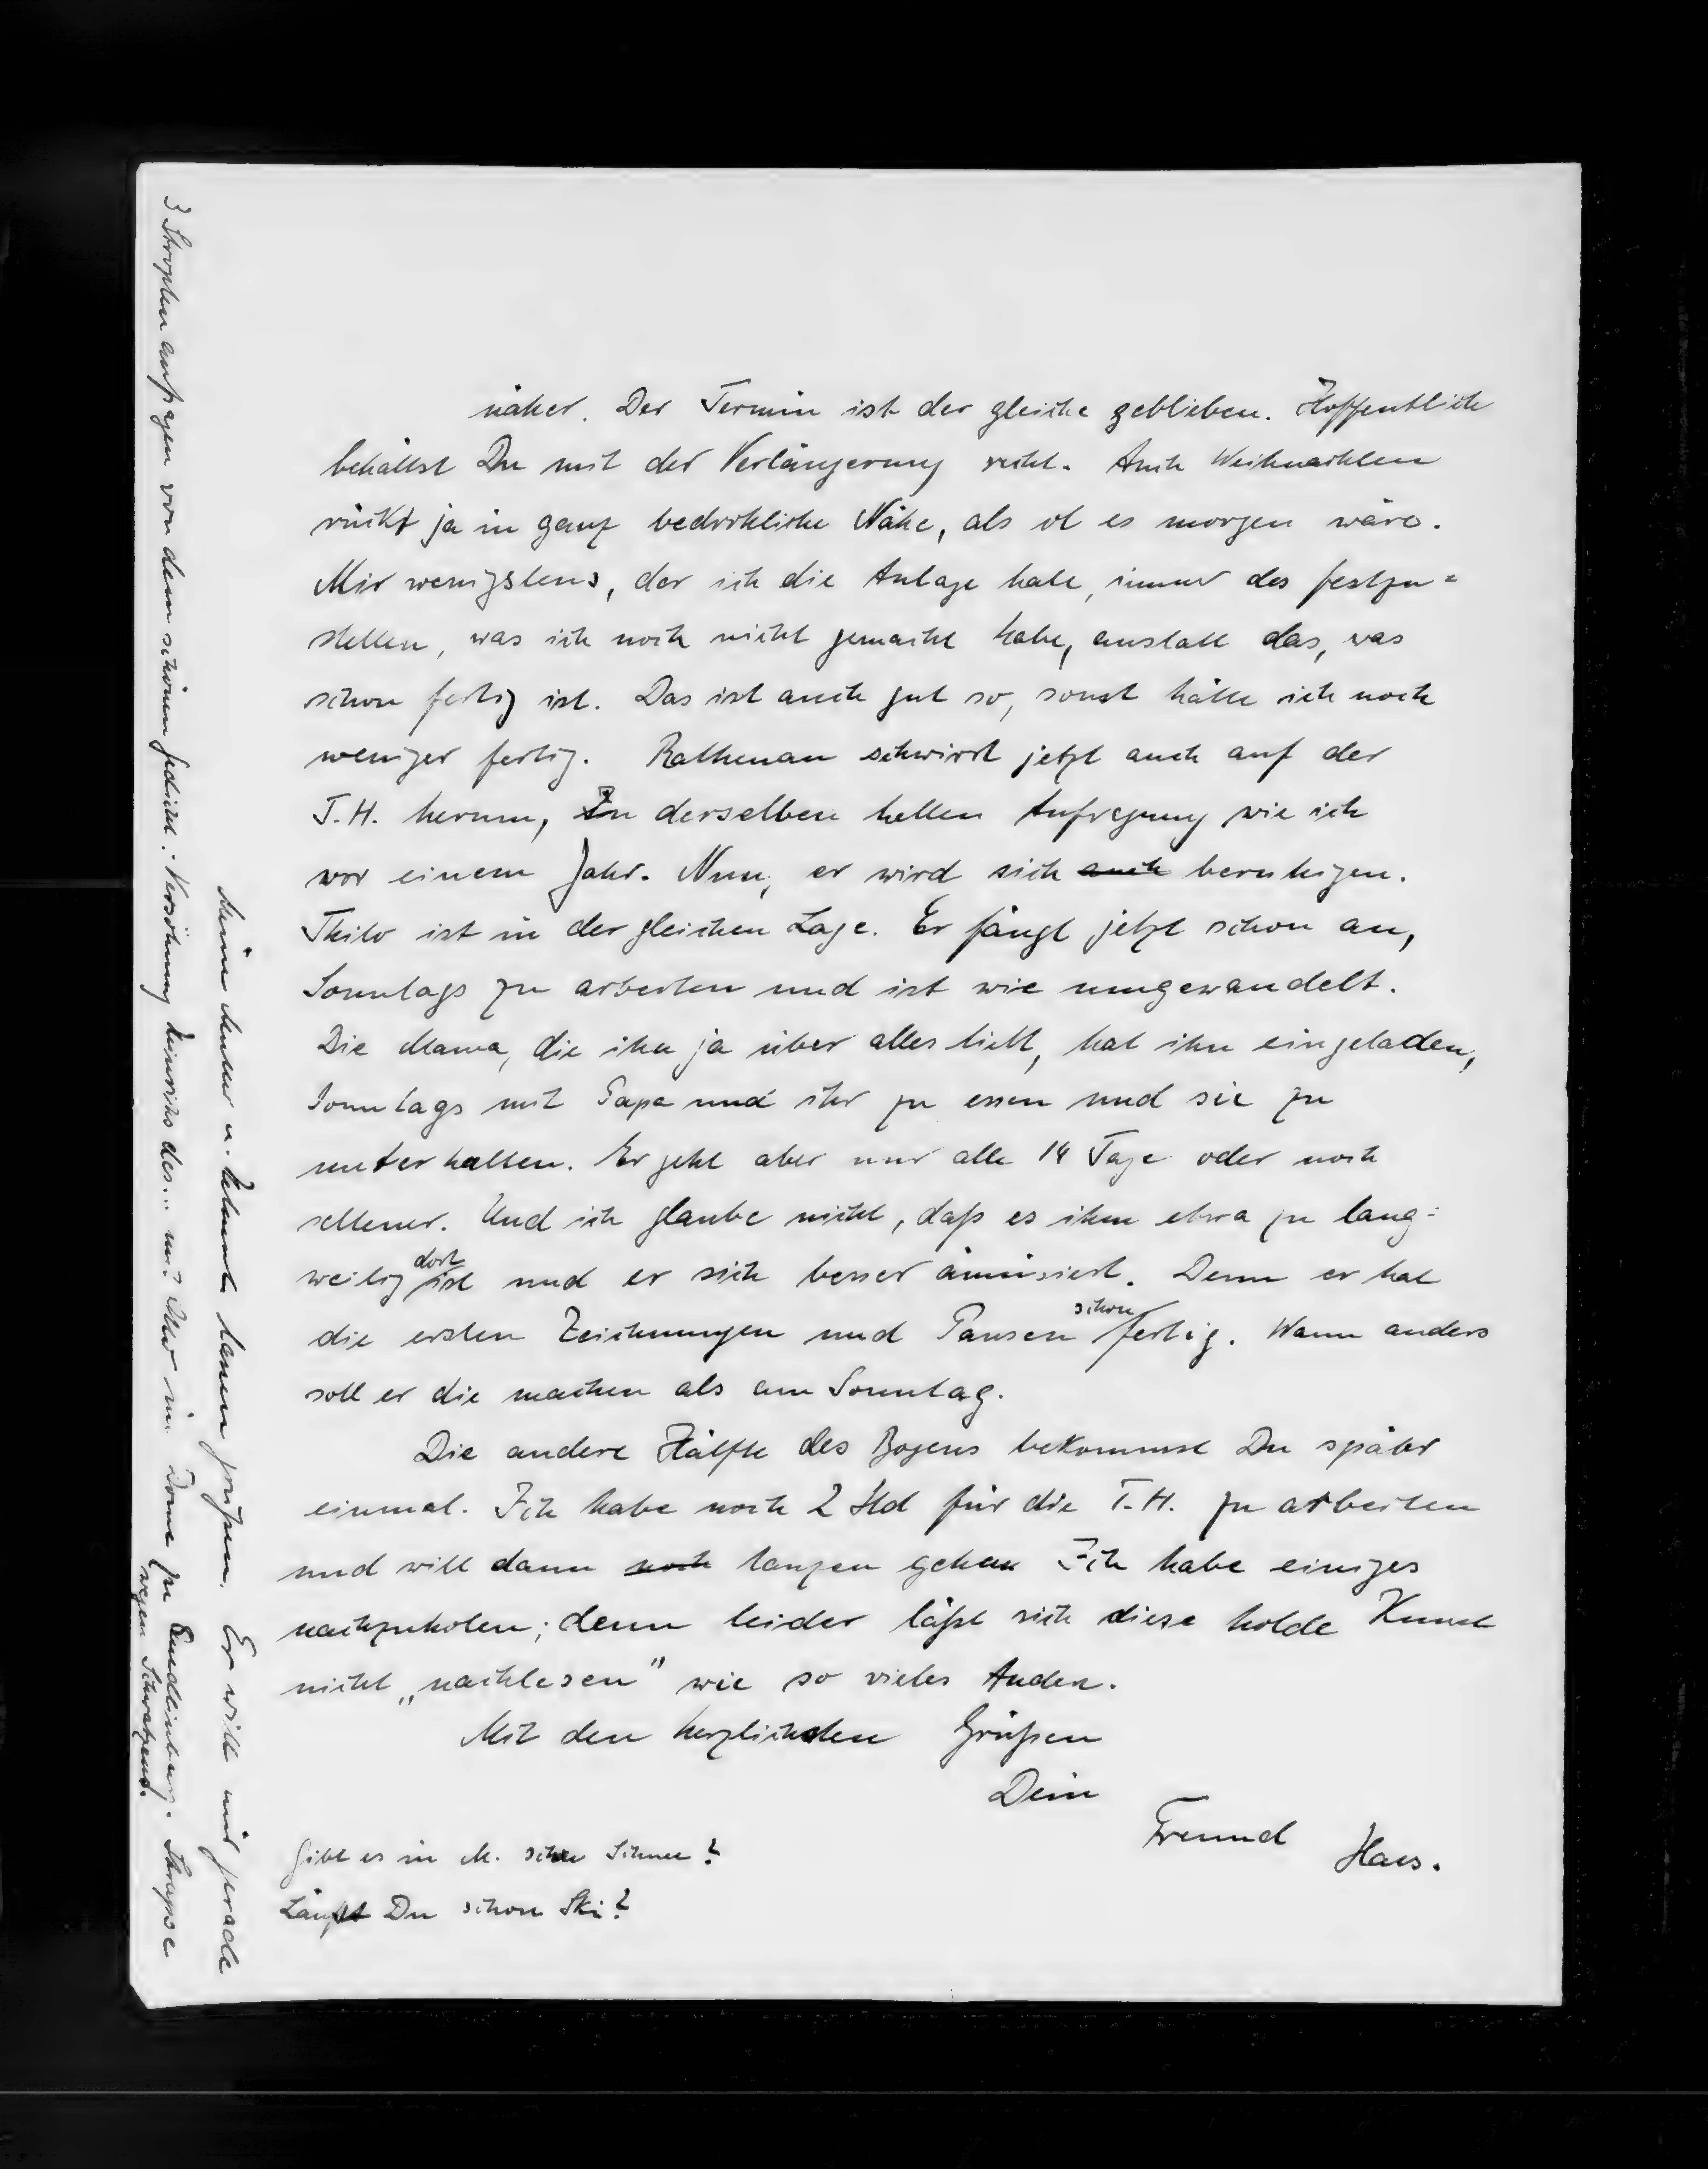 näher. Der Termin ist der gleiche geblieben. Hoffentlich
behältst Du mit der Verlängerung recht. Auch Weihnachten
rückt ja in ganz bedrohliche Nähe, als ob es morgen wäre.
Mir wenigstens, der ich die Anlage habe, immer das festzu=
stellen, was ich noch nicht gemacht habe, anstatt das, was
schon fertig ist. Das ist auch gut so, sonst hätte ich noch
weniger fertig. Rathenau schwirrt jetzt auch auf der
T.H. herum, in derselben hellen Aufregung wie ich
vor einem Jahr. Nun, er wird sich auch beruhigen.
Thilo ist in der gleichen Lage. Er fängt jetzt schon an,
Sonntags zu arbeiten und ist wie umgewandelt.
Die Mama, die ihn ja über alles liebt, hat ihn eingeladen,
Sonntags mit Papa und ihr zu essen und sie zu
unterhalten. Er geht aber nur alle 14 Tage oder noch
seltener. Und ich glaube nicht, daß es ihm etwa zu lang=
weilig dort ist und er sich besser amüsiert. Denn er hat
die ersten Zeichnungen und Pausen schon fertig. Wann anders
soll er die machen als am Sonntag.
Die andere Hälfte des Bogens bekommst Du später
einmal. Ich habe noch 2 Std für die T.H. zu arbeiten
und will dann noch tanzen gehen Ich habe einiges
nachzuholen; denn leider läßt sich diese holde Kunst
nicht „nachlesen" wie so vieles Andere.
Mit den herzlichsten Grüßen
Dein
Freund Hans.
Gibt es in M. schon Schnee?
Läufst Du schon Ski?
Meine Mutter u. lassen grüßen. Er will mir gerade
3 Strophen aufsagen von dem schönen Gedicht: Versöhnung Heinrichs des... mit Otto im Dome zu Quedlinburg. Strapse
wegen